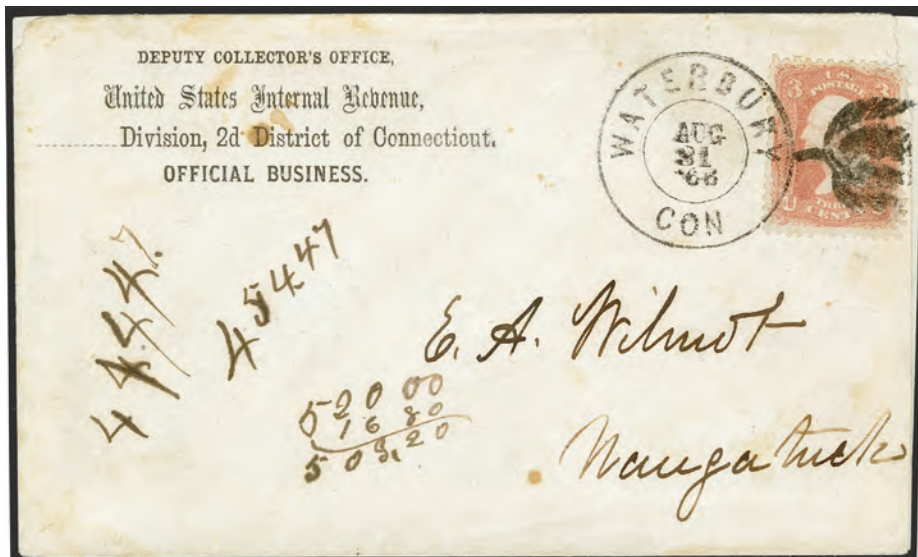 DEPUTY COLLECTOR'S OFFICE,
United States Internal Revenue,
Division, 2d District of Connecticut.
OFFICIAL BUSINESS.
WATERBURY
AUG
31
'66
CON
3 3
U.S.
POSTAGE
U
THREE
CENTS
454.47
E. A. Wilmot
520 00
16 80
503.20
Naugatuck